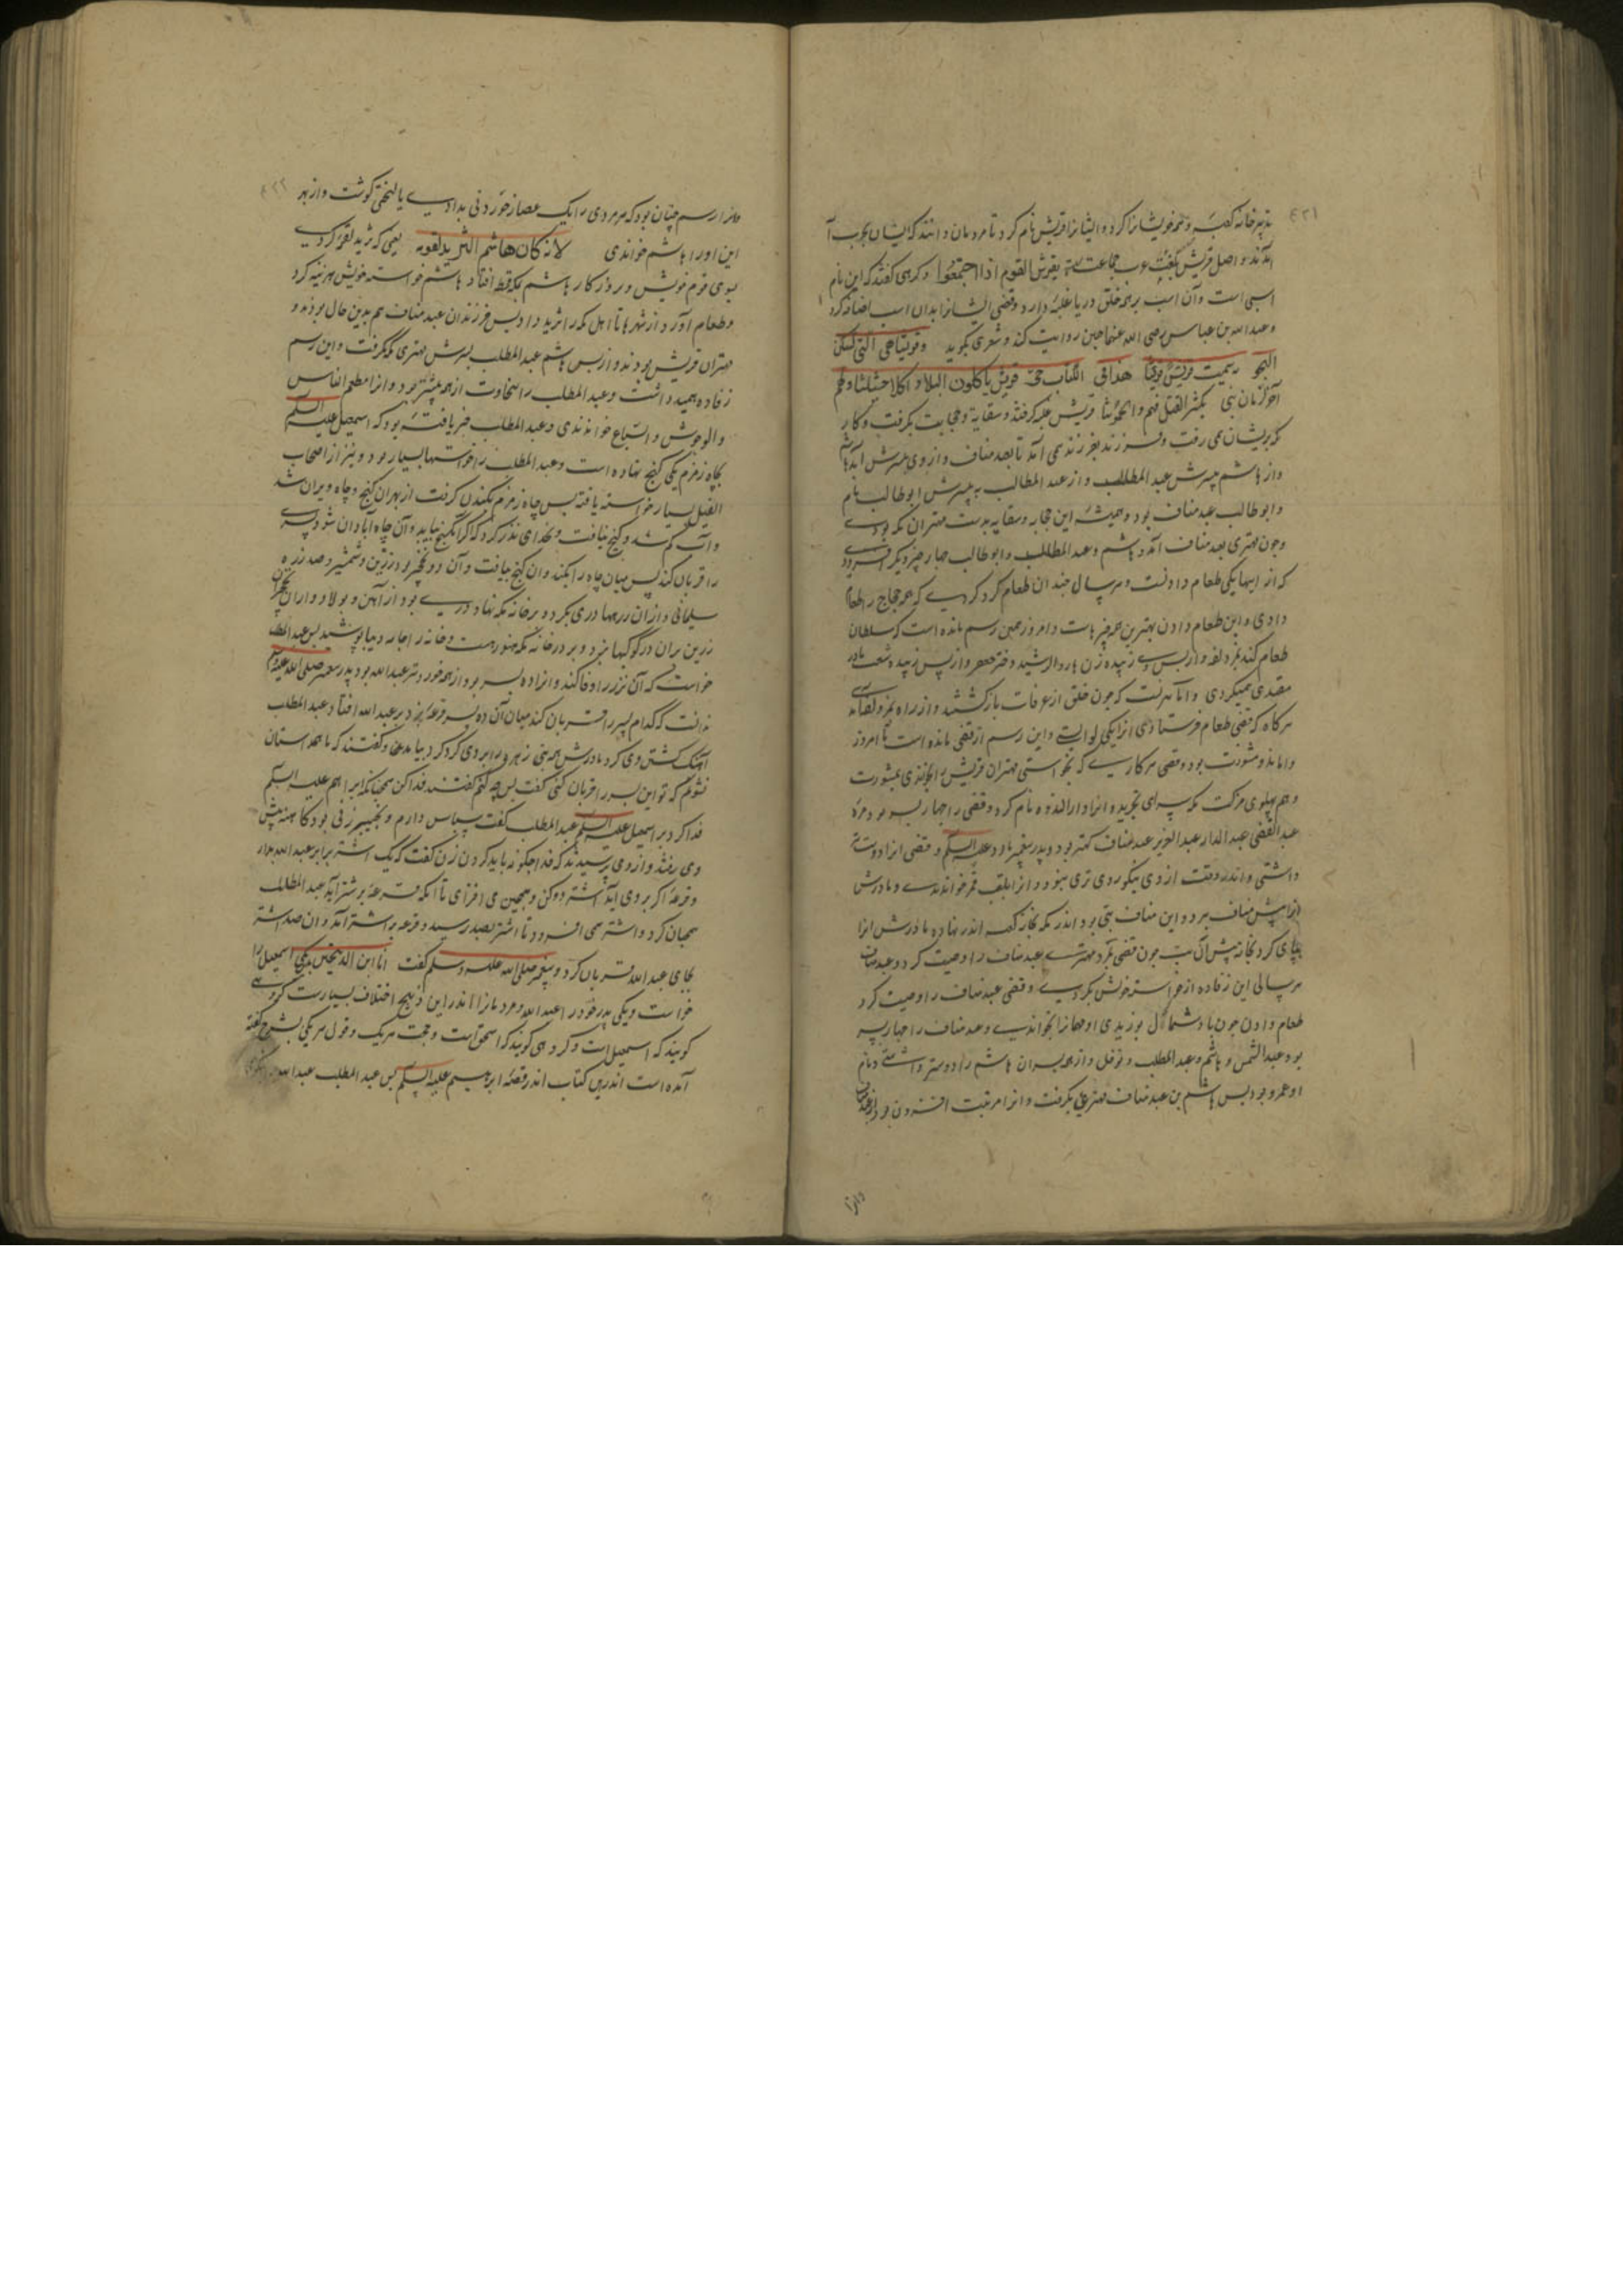 ٤٢١
تدبیر خانه کعبه و همه خویشانرا کرد و ایشانرا قریش نام کرد تا مردمان دانند که ایشان بحرب آ
آمدند و اصل قریش بلغت عرب جماعت یقرش القوم اذا اجتمعوا و کروهی کفتند که این نام
اسبی است و آن اسب بر همه خلق دریا غلبه دارد و قصی ایشانرا بدان اسب اضافه کرد
و عبدالله بن عباس رضی الله عنهما حین روایت کند و شعری بکوید وقریش هی التی تسکن
البحر سمیت قریش قریشا هذا فی الکتاب حی قریش یاکلون البلاد اکلا
آخر الزمان نبی یکثر القتل فیهم والخموشا قریش غلبه کرفتند و سقایة و حجابت بکرفت و کار
که بریشان می رفت و فرزند بفرزند می آمد تا بعبد مناف و از وی بپسرش آمد هاشم
و از هاشم بپسرش عبد المطلب و از عبد المطلب به پسرش ابوطالب نام
و ابوطالب عبد مناف بود و همیشه این حجابه و سقایه بدست مهتران مکه بودی
و چون مهتری بعبد مناف آمد و هاشم و عبد المطلب و ابوطالب چهار چیز دیگر افزود
که از اینها یکی طعام دادنست و هر سال چندان طعام کرد کردی که همه حجاج را طعام
دادی و این طعام دادن بهترین همه چیزهاست و امروز همین رسم مانده است که سلطان
طعام کند بمزدلفه و از پس وی زبیده زن هارون الرشید دختر جعفر و از پس زبیده
مقتدی همیکردی و اما آنست که چون خلق از عرفات بازکشتند و از راه بمزدلفه
هرکاه که قصی طعام فرستادی انرا یکی لوا بست و این رسم از قصی مانده است تا امروز
و اما ندوه مشورت بود و قصی هر کاری که بخواستی مهتران قریش را بخواندی بمشورت
و هم پهلوی مزکت مکه سرای بخرید و انرا دارالندوه نام کرد و قصی را چهار پسر بود
عبد القصی عبد الدار عبد العزیز عبد مناف کهتر بود و پدر پیغمبر ما بود علیه السلم و قصی انرا دوست
داشتی و اندر وقت از وی نیکو روی تری نبود و انرا بلقب قمر خواندندی و مادرش
انرا پیش مناف برد و این مناف بتی بود اندر مکه بکنار کعبه اندر نهاده مادرش انرا
بپای کرد بخانه پیش آن بت چون قصی بمرد مهتری بعبد مناف را وصیت کرد و عبد مناف
هر سالی این زفاده از خواسته خویش بکردی و قصی عبد مناف را وصیت کرد
طعام دادن چون باد شمال بوزیدی او مهمانرا بخواندی و عبد مناف را چهار پسر
بود عبد الشمس و هاشم و عبد المطلب و نوفل و از همه پسران هاشم را دوستر داشتی و نام
او عمرو بود پس هاشم بن عبد مناف مهتری بکرفت و انرا مرتبت افزون بود از عبد مناف
و انرا
٤٢٢
و انرا رسم چنان بود که هر مردی را یک عصا از خوردنی بدادی یا لختی کوشت و از بهر
این او را هاشم خواندی لانه کان هاشم الثرید لقومه یعنی که ثرید لقوم کردی
بسوی قوم خویش و بروزکار هاشم بمکه قحط افتاد هاشم خواسته خویش هزینه کرد
و طعام آورد از شهرها تا اهل مکه را ثرید داد پس فرزندان عبد مناف هم بدین حال بودند و
مهتران قریش بودند و از پس هاشم عبد المطلب پسرش مهتری مکه گرفت و این رسم
زفاده همیداشت و عبد المطلب را سخاوت از همه بیشتر بود و انرا مطعم الناس
والوحوش والسباع خواندندی و عبد المطلب خبر یافته بود که اسمعیل علیه السلم
بچاه زمزم یکی کنج نهاده است و عبد المطلب را خواستها بسیار بود و نیز از اصحاب
الفیل بسیار خواسته یافته پس چاه زمزم بکندن کرفت از بهر آن کنج و چاه ویران شد
و آب کم شد و کنج نیافت و بخدای نذر کرد که اکر آن کنج بیابد و آن چاه آبادان شود پسری
را قربان کند پس میان چاه را بکند و ان کنج بیافت و آن دو نخچیر بود زرین و شمشیر و صد زره
سلیمانی و از ان زرهها دری بکرد و بر خانه مکه نهاد و دری بود از آهن و پولاد و از ان نخچیران
زرین بران در کوکبها بزد و بر در خانه مکه هنوز هست و خانه را جامه دیبا پوشید پس عبد المطلب
خواست که آن نذر را وفا کند و انرا ده پسر بود از همه خوردتر عبدالله بود پدر پیغمبر صلی الله علیه وسلم
ندانست که کدام پسر را قربان کند میان آن ده پسر قرعه بزد بر عبدالله افتاد عبد المطلب
آهنک کشتن وی کرد مادرش همه بنی زهره را بر وی کرد کرد بیامدند و کفتند که ما همداستان
نشویم که تو این پسر را قربان کنی کفت پس چه کنم کفتند فدا کن همچنانکه ابراهیم علیه السلم
فدا کرد بر اسمعیل علیه السلم عبد المطلب کفت سپاس دارم و بخیبر زنی بود کاهنه پیش
وی رفتند و از وی پرسیدند که فدا چکونه باید کردن زن کفت که یک اشتر برابر عبدالله بدار
و قرعه اکر بر وی اید اشتر دو کن و همچنین می افزای تا انکه قرعه بر اشتر آید عبد المطلب
همچنان کرد و اشتر همی افزود تا اشتر بصد رسید و قرعه بر اشتر آمد و ان صد اشتر
بجای عبدالله قربان کرد و پیغمبر صلی الله علیه وسلم کفت انا ابن الذبیحین یکی اسمعیل را
خواست و یکی پدر خود را عبدالله و مردمانرا اندر این ذبیح اختلاف بسیارست کروهی
کویند که اسمعیل است و کروهی کویند که اسحق است و حجت هر یک و قول هر یکی بشرح کفته
آمده است اندرین کتاب اندر قصه ابرهیم علیه السلم پس عبد المطلب عبدالله